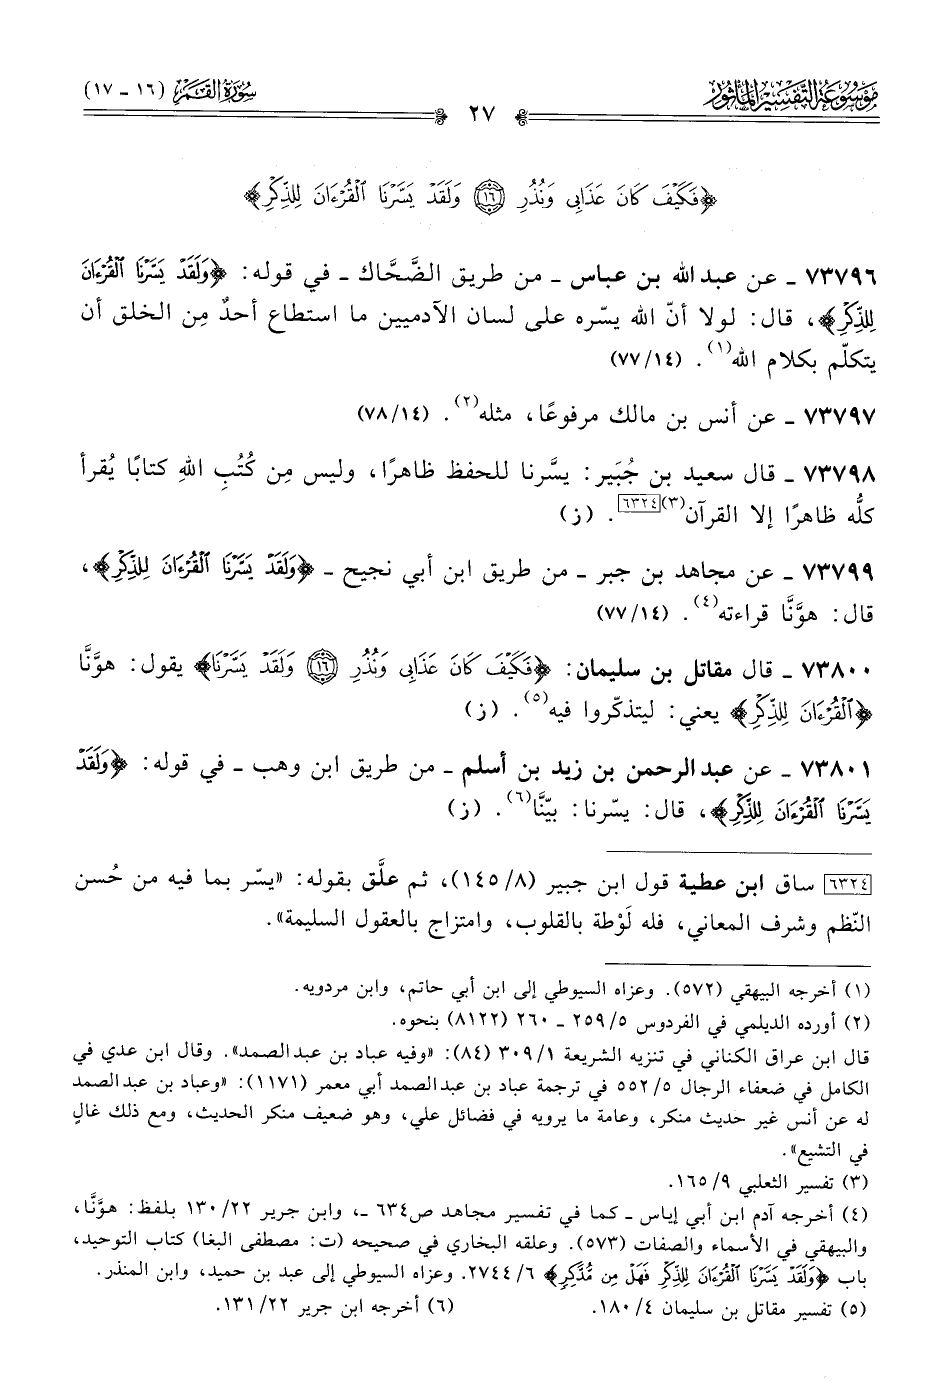 موسوعة التفسير المأثور
سورة القمر (١٦ - ١٧)
٢٧
﴿فَكَيْفَ كَانَ عَذَابِى وَنُذُرِ ۝١٦ وَلَقَدْ يَسَّرْنَا ٱلْقُرْءَانَ لِلذِّكْرِ﴾
٧٣٧٩٦ ـ عن عبد الله بن عباس ـ من طريق الضَّحَّاك ـ في قوله: ﴿وَلَقَدْ يَسَّرْنَا ٱلْقُرْءَانَ
لِلذِّكْرِ﴾، قال: لولا أنّ الله يسّره على لسان الآدميين ما استطاع أحدٌ مِن الخلق أن
يتكلّم بكلام الله(١). (٧٧/١٤)
٧٣٧٩٧ ـ عن أنس بن مالك مرفوعًا، مثله(٢). (٧٨/١٤)
٧٣٧٩٨ ـ قال سعيد بن جُبَير: يسَّرنا للحفظ ظاهرًا، وليس مِن كُتُبِ اللهِ كتابًا يُقرأ
كلُّه ظاهرًا إلا القرآن(٣)[٦٣٢٤]. (ز)
٧٣٧٩٩ ـ عن مجاهد بن جبر ـ من طريق ابن أبي نجيح ـ ﴿وَلَقَدْ يَسَّرْنَا ٱلْقُرْءَانَ لِلذِّكْرِ﴾،
قال: هوَّنَّا قراءته(٤). (٧٧/١٤)
٧٣٨٠٠ ـ قال مقاتل بن سليمان: ﴿فَكَيْفَ كَانَ عَذَابِى وَنُذُرِ ۝١٦ وَلَقَدْ يَسَّرْنَا﴾ يقول: هوَّنَّا
﴿ٱلْقُرْءَانَ لِلذِّكْرِ﴾ يعني: ليتذكّروا فيه(٥). (ز)
٧٣٨٠١ ـ عن عبد الرحمن بن زيد بن أسلم ـ من طريق ابن وهب ـ في قوله: ﴿وَلَقَدْ
يَسَّرْنَا ٱلْقُرْءَانَ لِلذِّكْرِ﴾، قال: يسّرنا: بيّنَّا(٦). (ز)
[٦٣٢٤] ساق ابن عطية قول ابن جبير (١٤٥/٨)، ثم علَّق بقوله: «يسّر بما فيه من حُسن
النّظم وشرف المعاني، فله لَوْطة بالقلوب، وامتزاج بالعقول السليمة».
(١) أخرجه البيهقي (٥٧٢). وعزاه السيوطي إلى ابن أبي حاتم، وابن مردويه.
(٢) أورده الديلمي في الفردوس ٢٥٩/٥ ـ ٢٦٠ (٨١٢٢) بنحوه.
قال ابن عراق الكناني في تنزيه الشريعة ٣٠٩/١ (٨٤): «وفيه عباد بن عبد الصمد». وقال ابن عدي في
الكامل في ضعفاء الرجال ٥٥٢/٥ في ترجمة عباد بن عبد الصمد أبي معمر (١١٧١): «وعباد بن عبد الصمد
له عن أنس غير حديث منكر، وعامة ما يرويه في فضائل علي، وهو ضعيف منكر الحديث، ومع ذلك غالٍ
في التشيع».
(٣) تفسير الثعلبي ١٦٥/٩.
(٤) أخرجه آدم ابن أبي إياس ـ كما في تفسير مجاهد ص٦٣٤ ـ، وابن جرير ١٣٠/٢٢ بلفظ: هوَّنَّا،
والبيهقي في الأسماء والصفات (٥٧٣). وعلقه البخاري في صحيحه (ت: مصطفى البغا) كتاب التوحيد،
باب ﴿وَلَقَدْ يَسَّرْنَا ٱلْقُرْءَانَ لِلذِّكْرِ فَهَلْ مِن مُّدَّكِرٍ﴾ ٢٧٤٤/٦. وعزاه السيوطي إلى عبد بن حميد، وابن المنذر.
(٥) تفسير مقاتل بن سليمان ١٨٠/٤.
(٦) أخرجه ابن جرير ١٣١/٢٢.